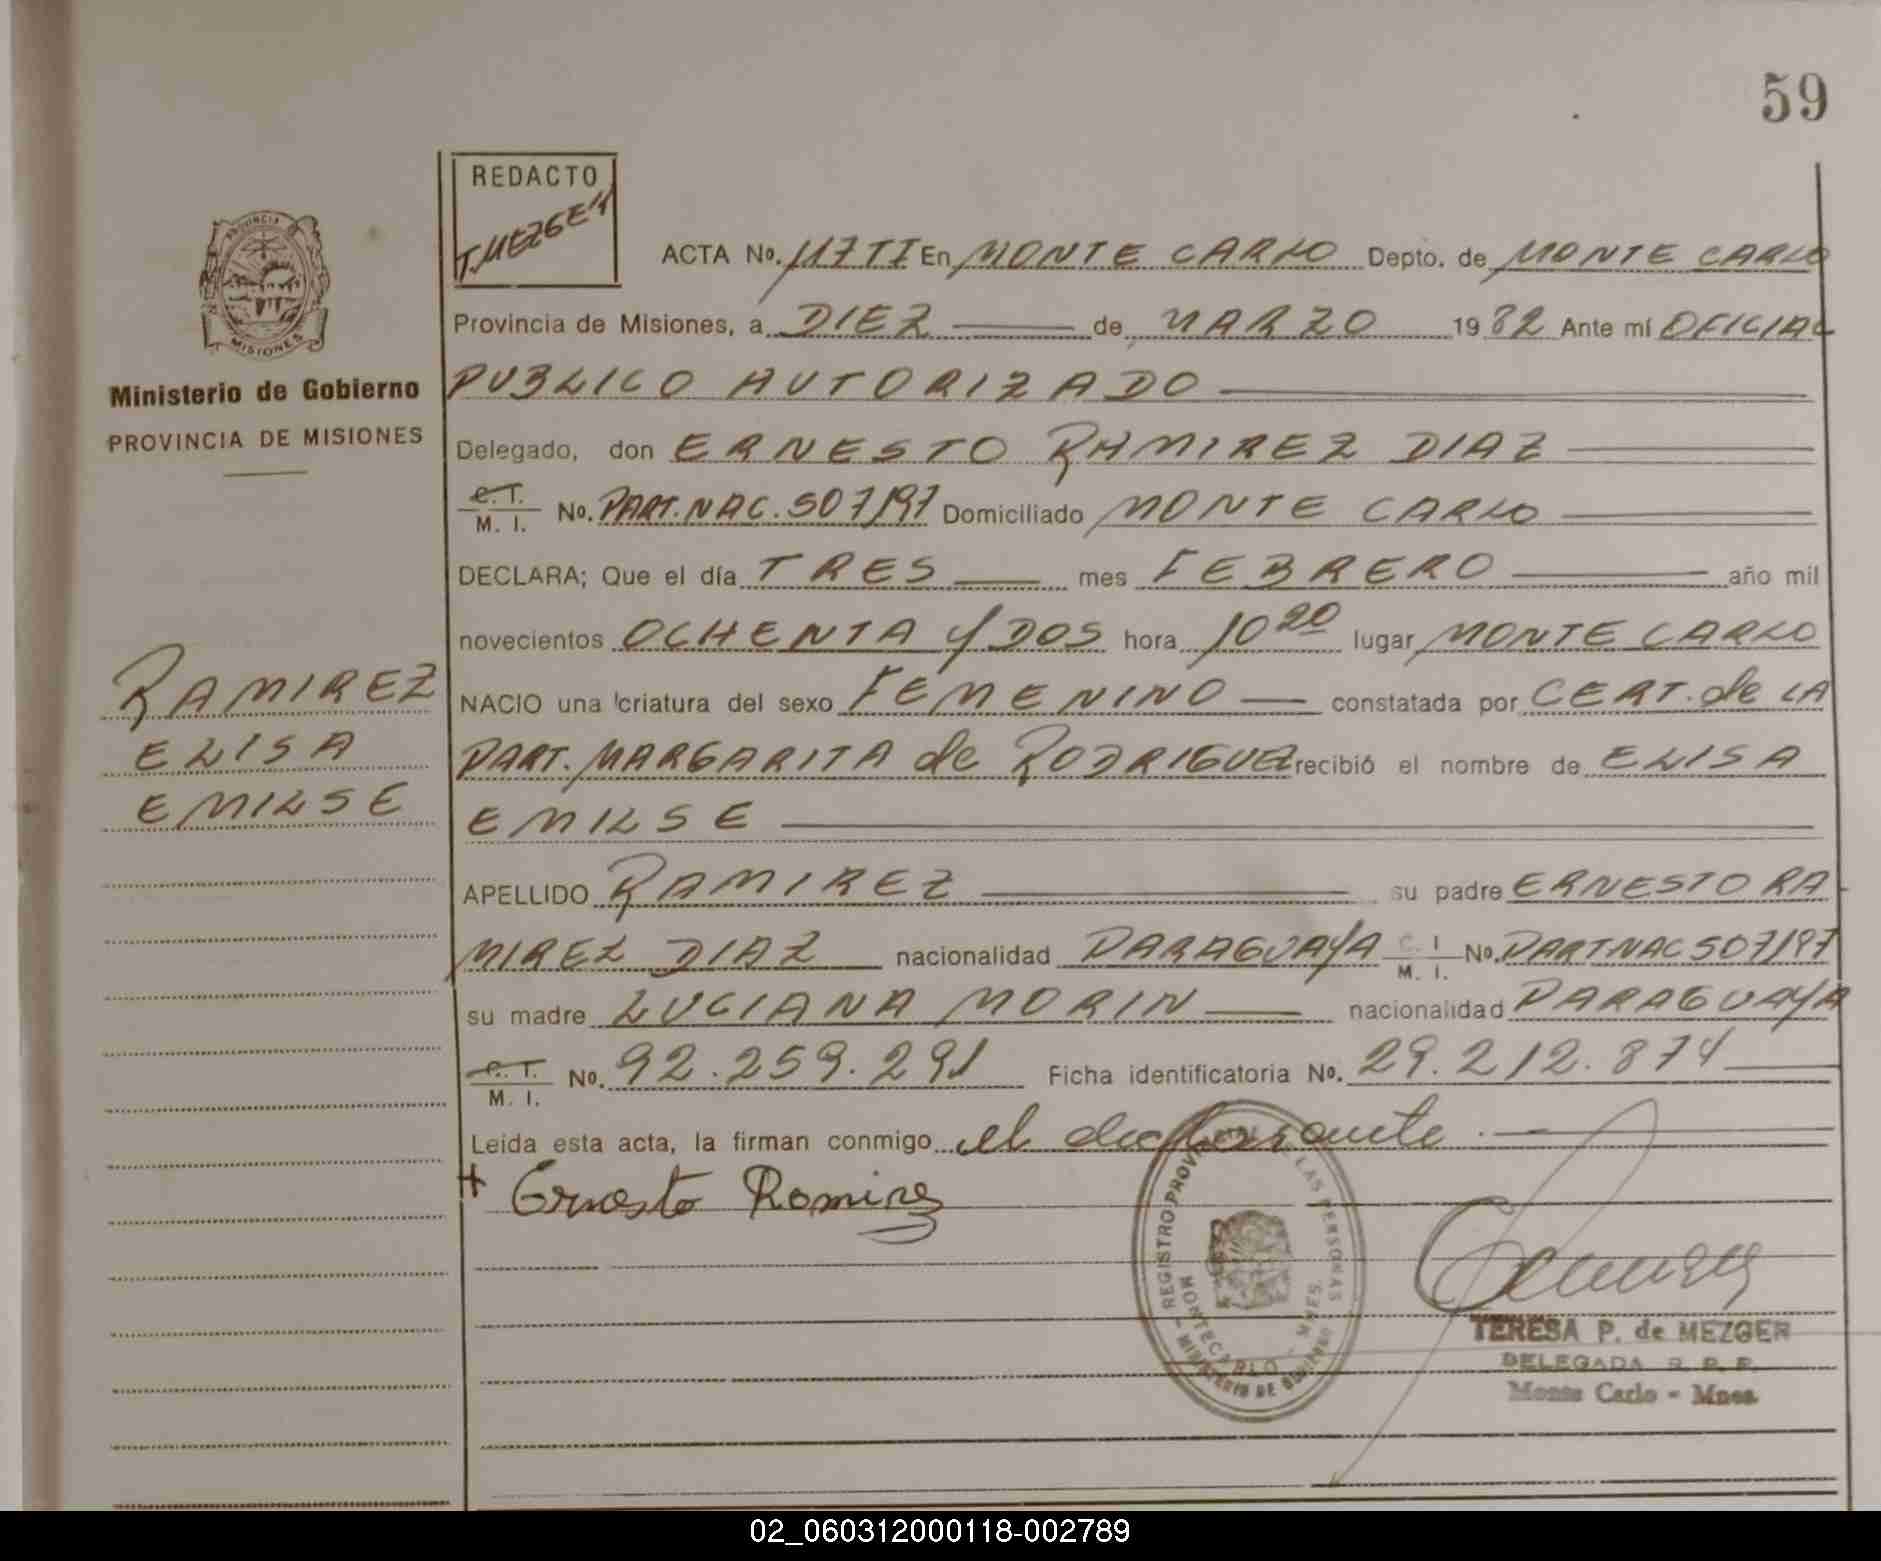 59
REDACTO
T. MEZGER
ACTA No. 117 TI En MONTE CARLO Depto. de MONTE CARLO
Provincia de Misiones, a DIEZ de MARZO 1982 Ante mí OFICIAL
PUBLICO AUTORIZADO
Ministerio de Gobierno
PROVINCIA DE MISIONES
Delegado, don ERNESTO RAMIREZ DIAZ
C.I. M. I. No. PART. NAC. 507/97 Domiciliado MONTE CARLO
DECLARA; Que el día TRES mes FEBRERO año mil
novecientos OCHENTA y DOS hora 10 20 lugar MONTE CARLO
RAMIREZ
ELISA
EMILSE
NACIO una criatura del sexo FEMENINO constatada por CERT. de LA
PART. MARGARITA de RODRIGUEZ recibió el nombre de ELISA
EMILSE
APELLIDO RAMIREZ su padre ERNESTO RA
MIREZ DIAZ nacionalidad PARAGUAYA C. I. M. I. No. PART NAC 507/97
su madre LUCIANA MORIN nacionalidad PARAGUAYA
C.I. M. I. No. 92.259.291 Ficha identificatoria No. 29.212.874
Leida esta acta, la firman conmigo el declarante
+ Ernesto Ramirez
PROVINCIA
MISIONES
REGISTRO PROVINCIAL DE LAS PERSONAS
MONTECARLO - MNES.
MINISTERIO DE GOBIERNO
TERESA P. de MEZGER
DELEGADA R. P. P.
Monte Carlo - Mnes.
02_060312000118-002789